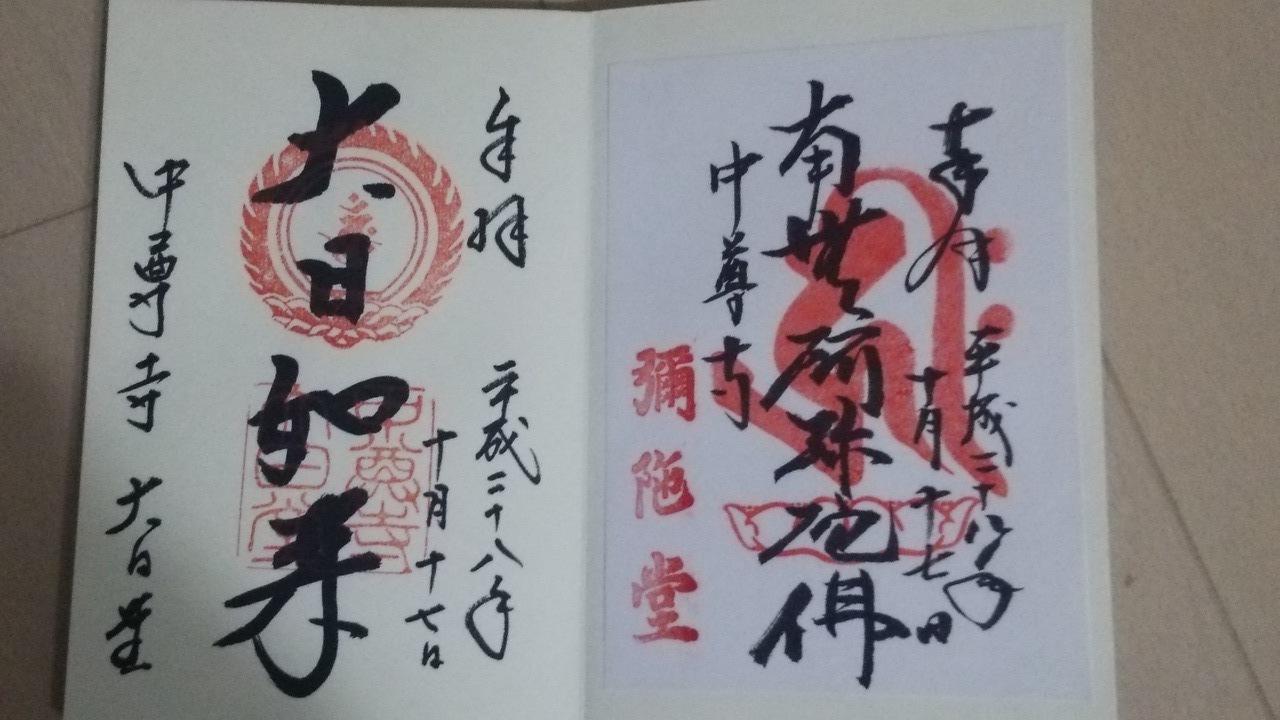 奉拝
平成二十八年
十月十七日
南無阿弥陀佛
中尊寺
彌陀堂
奉拝
平成二十八年
十月十七日
大日如来
中尊寺 大日堂